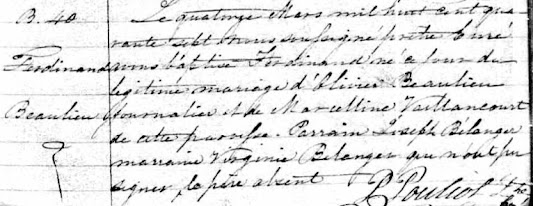 B. 40
Ferdinand
Beaulieu
Le quatorze Mars mil huit cent qua
rante sept nous soussigné prêtre Curé
avons baptisé Ferdinand né ce jour du
légitime mariage d'Olivier Beaulieu
journalier et de Marcelline Vaillancourt
de cette paroisse. Parrain Joseph Bélanger
marraine Virginie Belanger qui n'ont pu
signer, le père absent
P. Pouliot Ptre